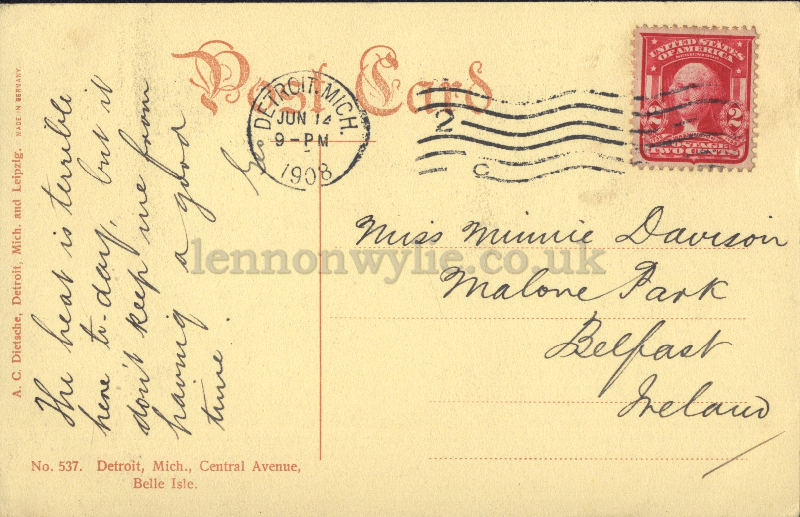 Post Card
DETROIT, MICH.
JUN 12
9-PM
1908
2
C
UNITED STATES
OF AMERICA
2 2
POSTAGE
TWO CENTS
A. C. Dietsche, Detroit, Mich. and Leipzig. MADE IN GERMANY.
The heat is terrible
here to-day, but it
don't keep me from
having a good
time. Geo
Miss Minnie Davison
Malone Park
Belfast
Ireland
lennonwylie.co.uk
No. 537. Detroit, Mich., Central Avenue,
Belle Isle.